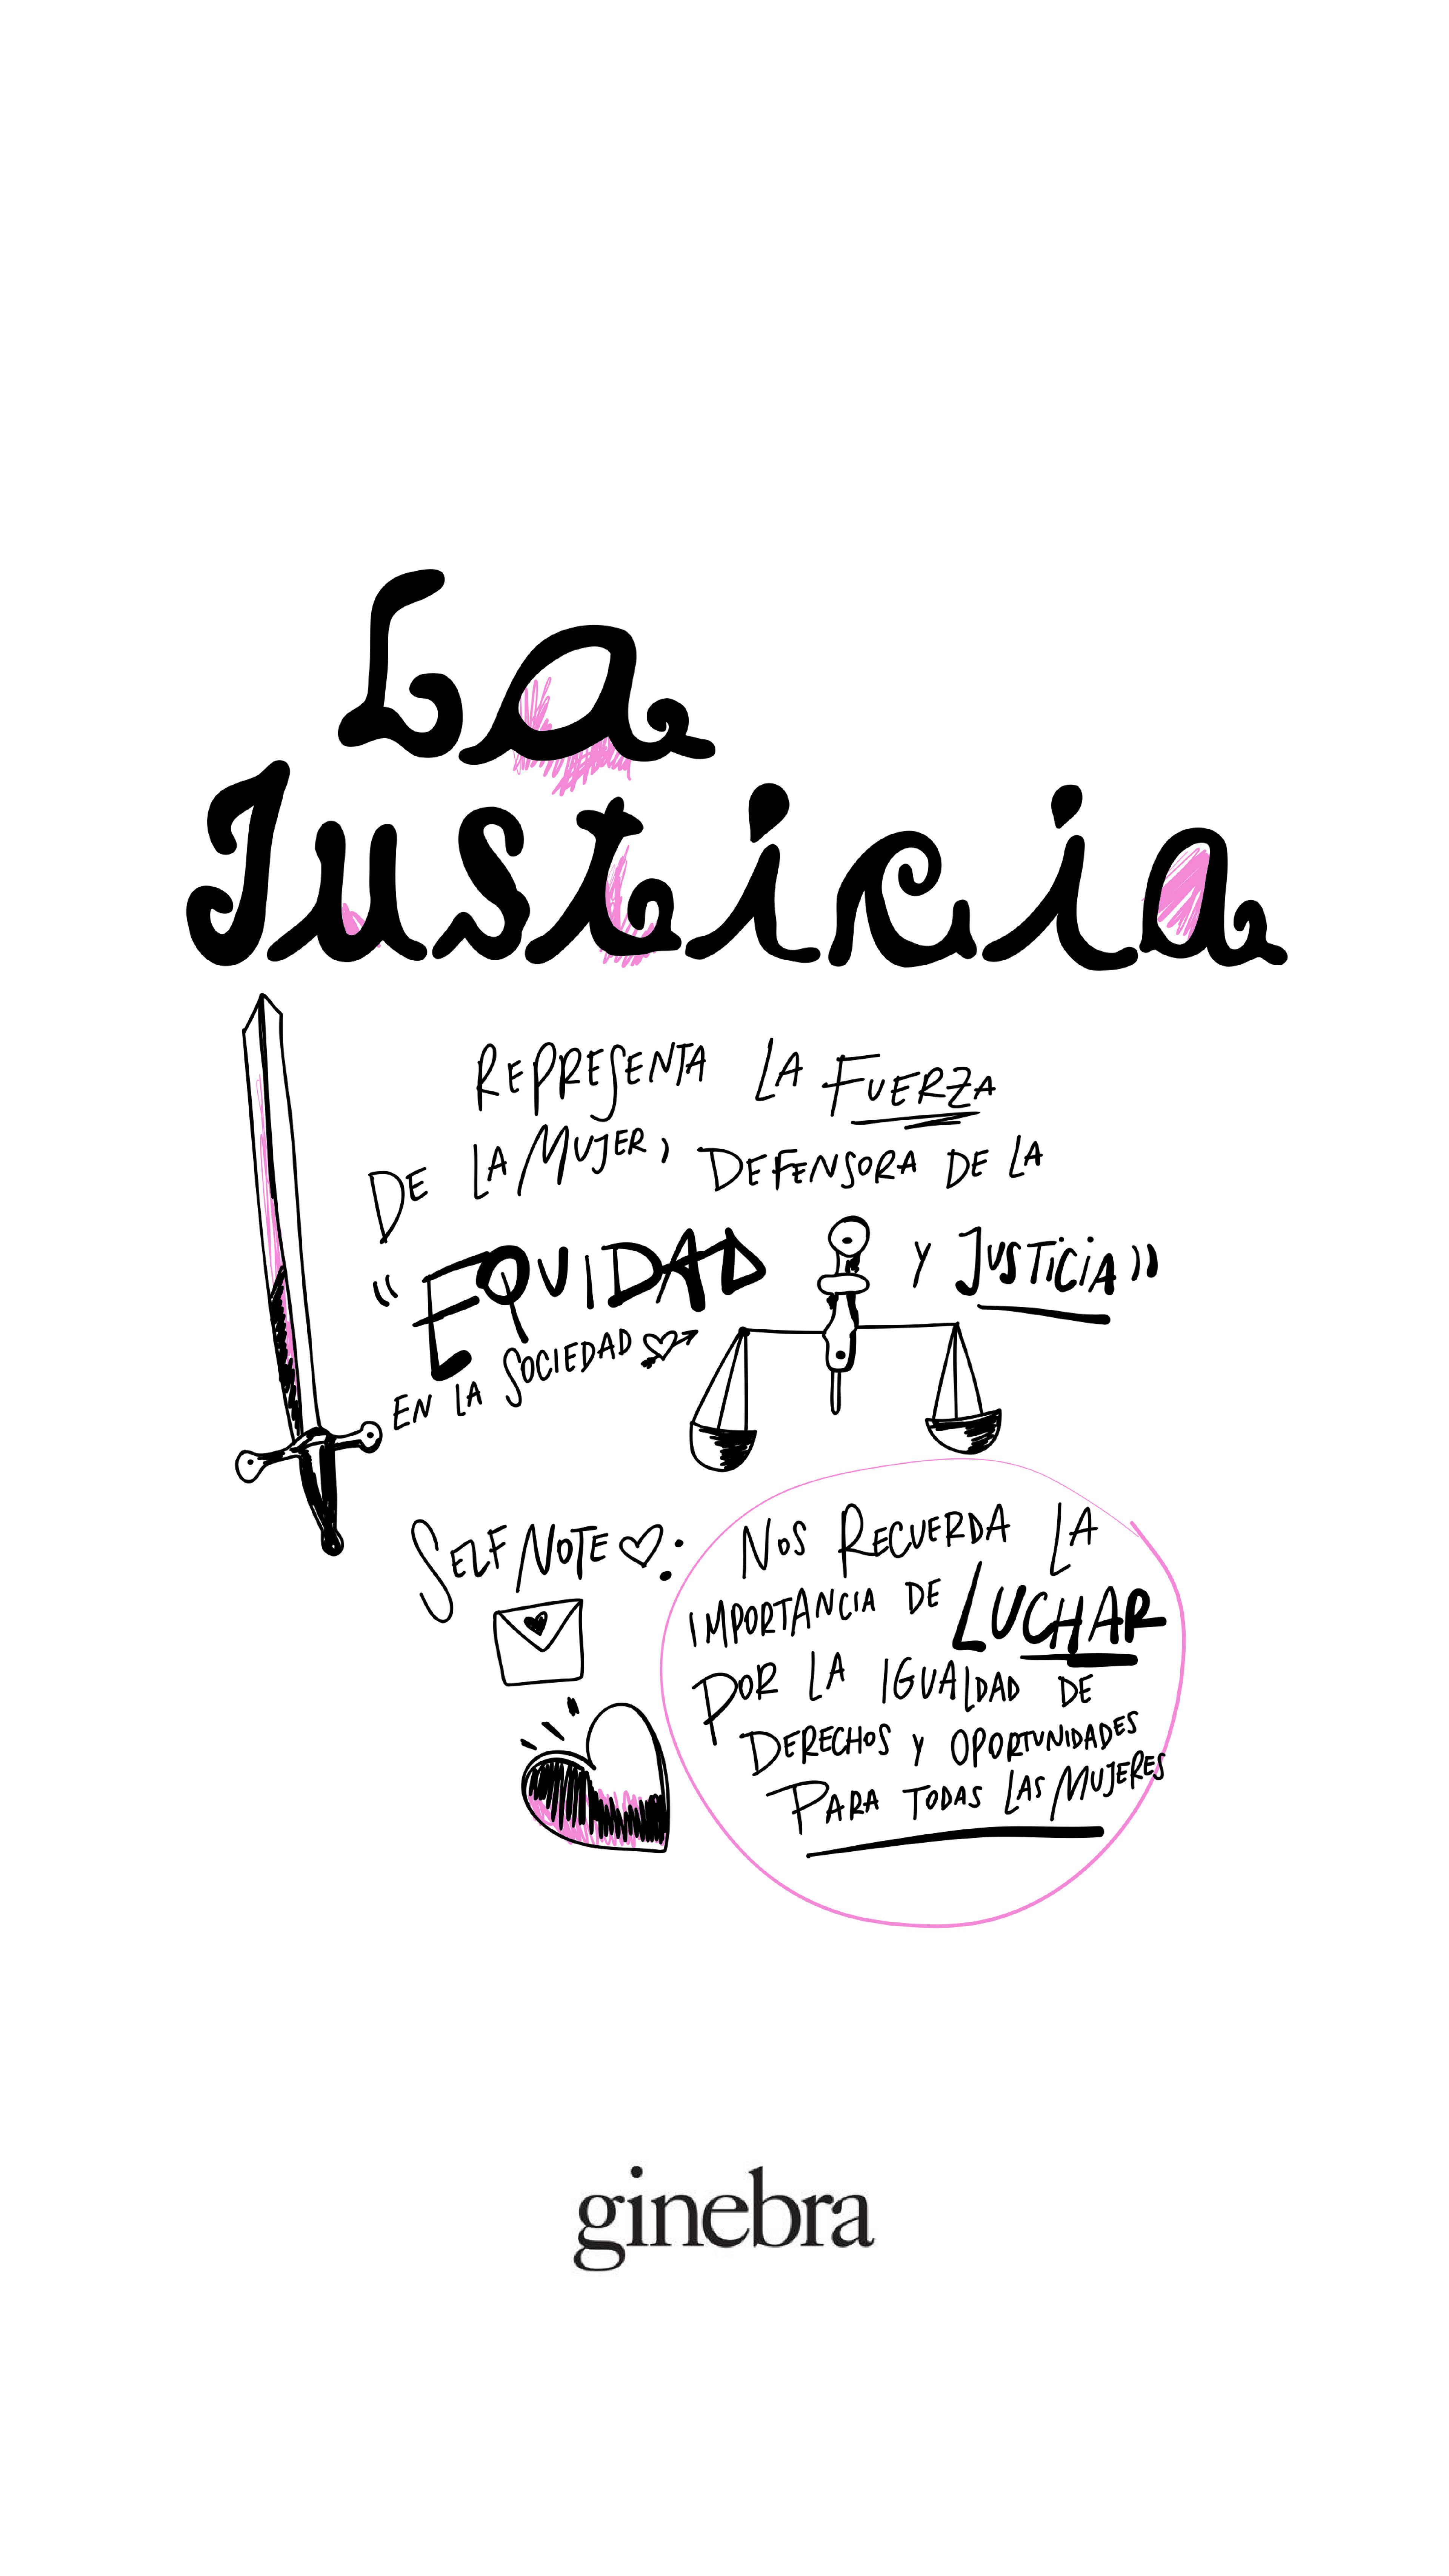 La
Justicia
REPRESENTA LA FUERZA
DE LA MUJER, DEFENSORA DE LA
"EQUIDAD Y JUSTICIA"
EN LA SOCIEDAD
SELF NOTE:
NOS RECUERDA LA
IMPORTANCIA DE LUCHAR
POR LA IGUALDAD DE
DERECHOS Y OPORTUNIDADES
PARA TODAS LAS MUJERES
ginebra